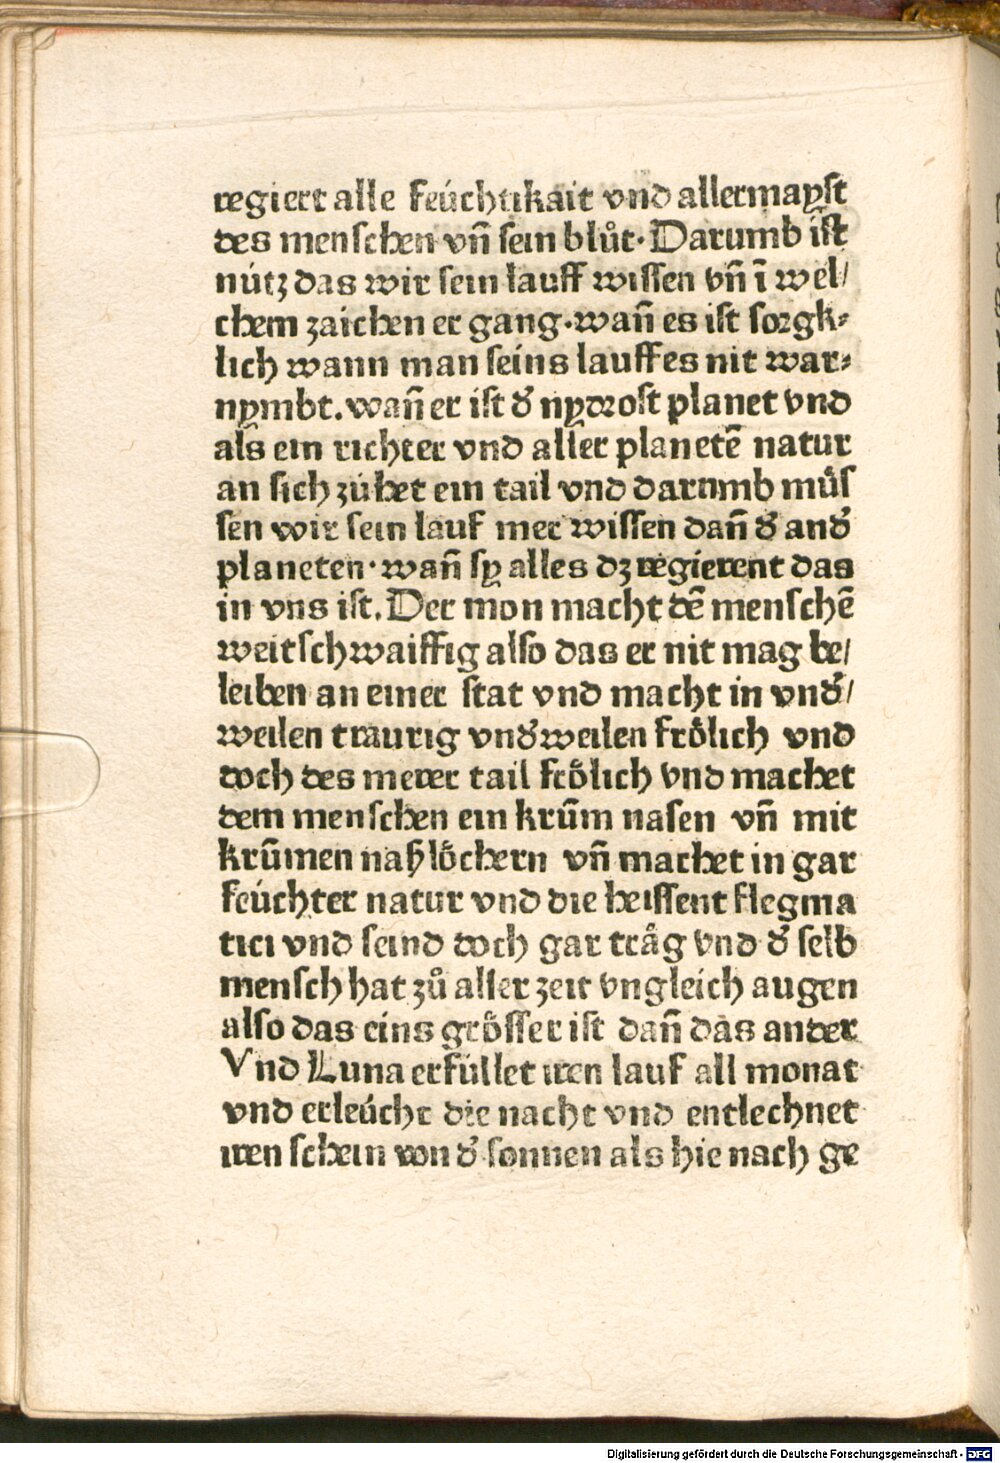 regiert alle feúchtikait vnd allermayst
des menschen vn̄ sein blůt. Darumb ist
nútz das wir sein lauff wissen vn̄ ī wel/
chem zaichen er gang. wan̄ es ist sorgk⸗
lich wann man seins lauffes nit war⸗
nymbt. wan̄ er ist d' nyderost planet vnd
als ein richter vnd aller planetē natur
an sich zúhet ein tail vnd darumb můs
sen wir sein lauf mer wissen dan̄ d' and'
planeten. wan̄ sy alles dz regierent das
in vns ist. Der mon macht dē menschē
weitschwaiffig also das er nit mag be/
leiben an einer stat vnd macht in vnd'/
weilen traurig vnd'weilen frölich vnd
doch des merer tail frölich vnd machet
dem menschen ein krūm nasen vn̄ mit
krūmen naßlöchern vn̄ machet in gar
feúchter natur vnd die heissent flegma
tici vnd seind doch gar träg vnd d' selb
mensch hat zů aller zeit vngleich augen
also das eins grösser ist dan̄ das ander
Vnd Luna erfúllet iren lauf all monat
vnd erleúcht die nacht vnd entlechnet
iren schein von d' sonnen als hie nach ge
Digitalisierung gefördert durch die Deutsche Forschungsgemeinschaft - DFG